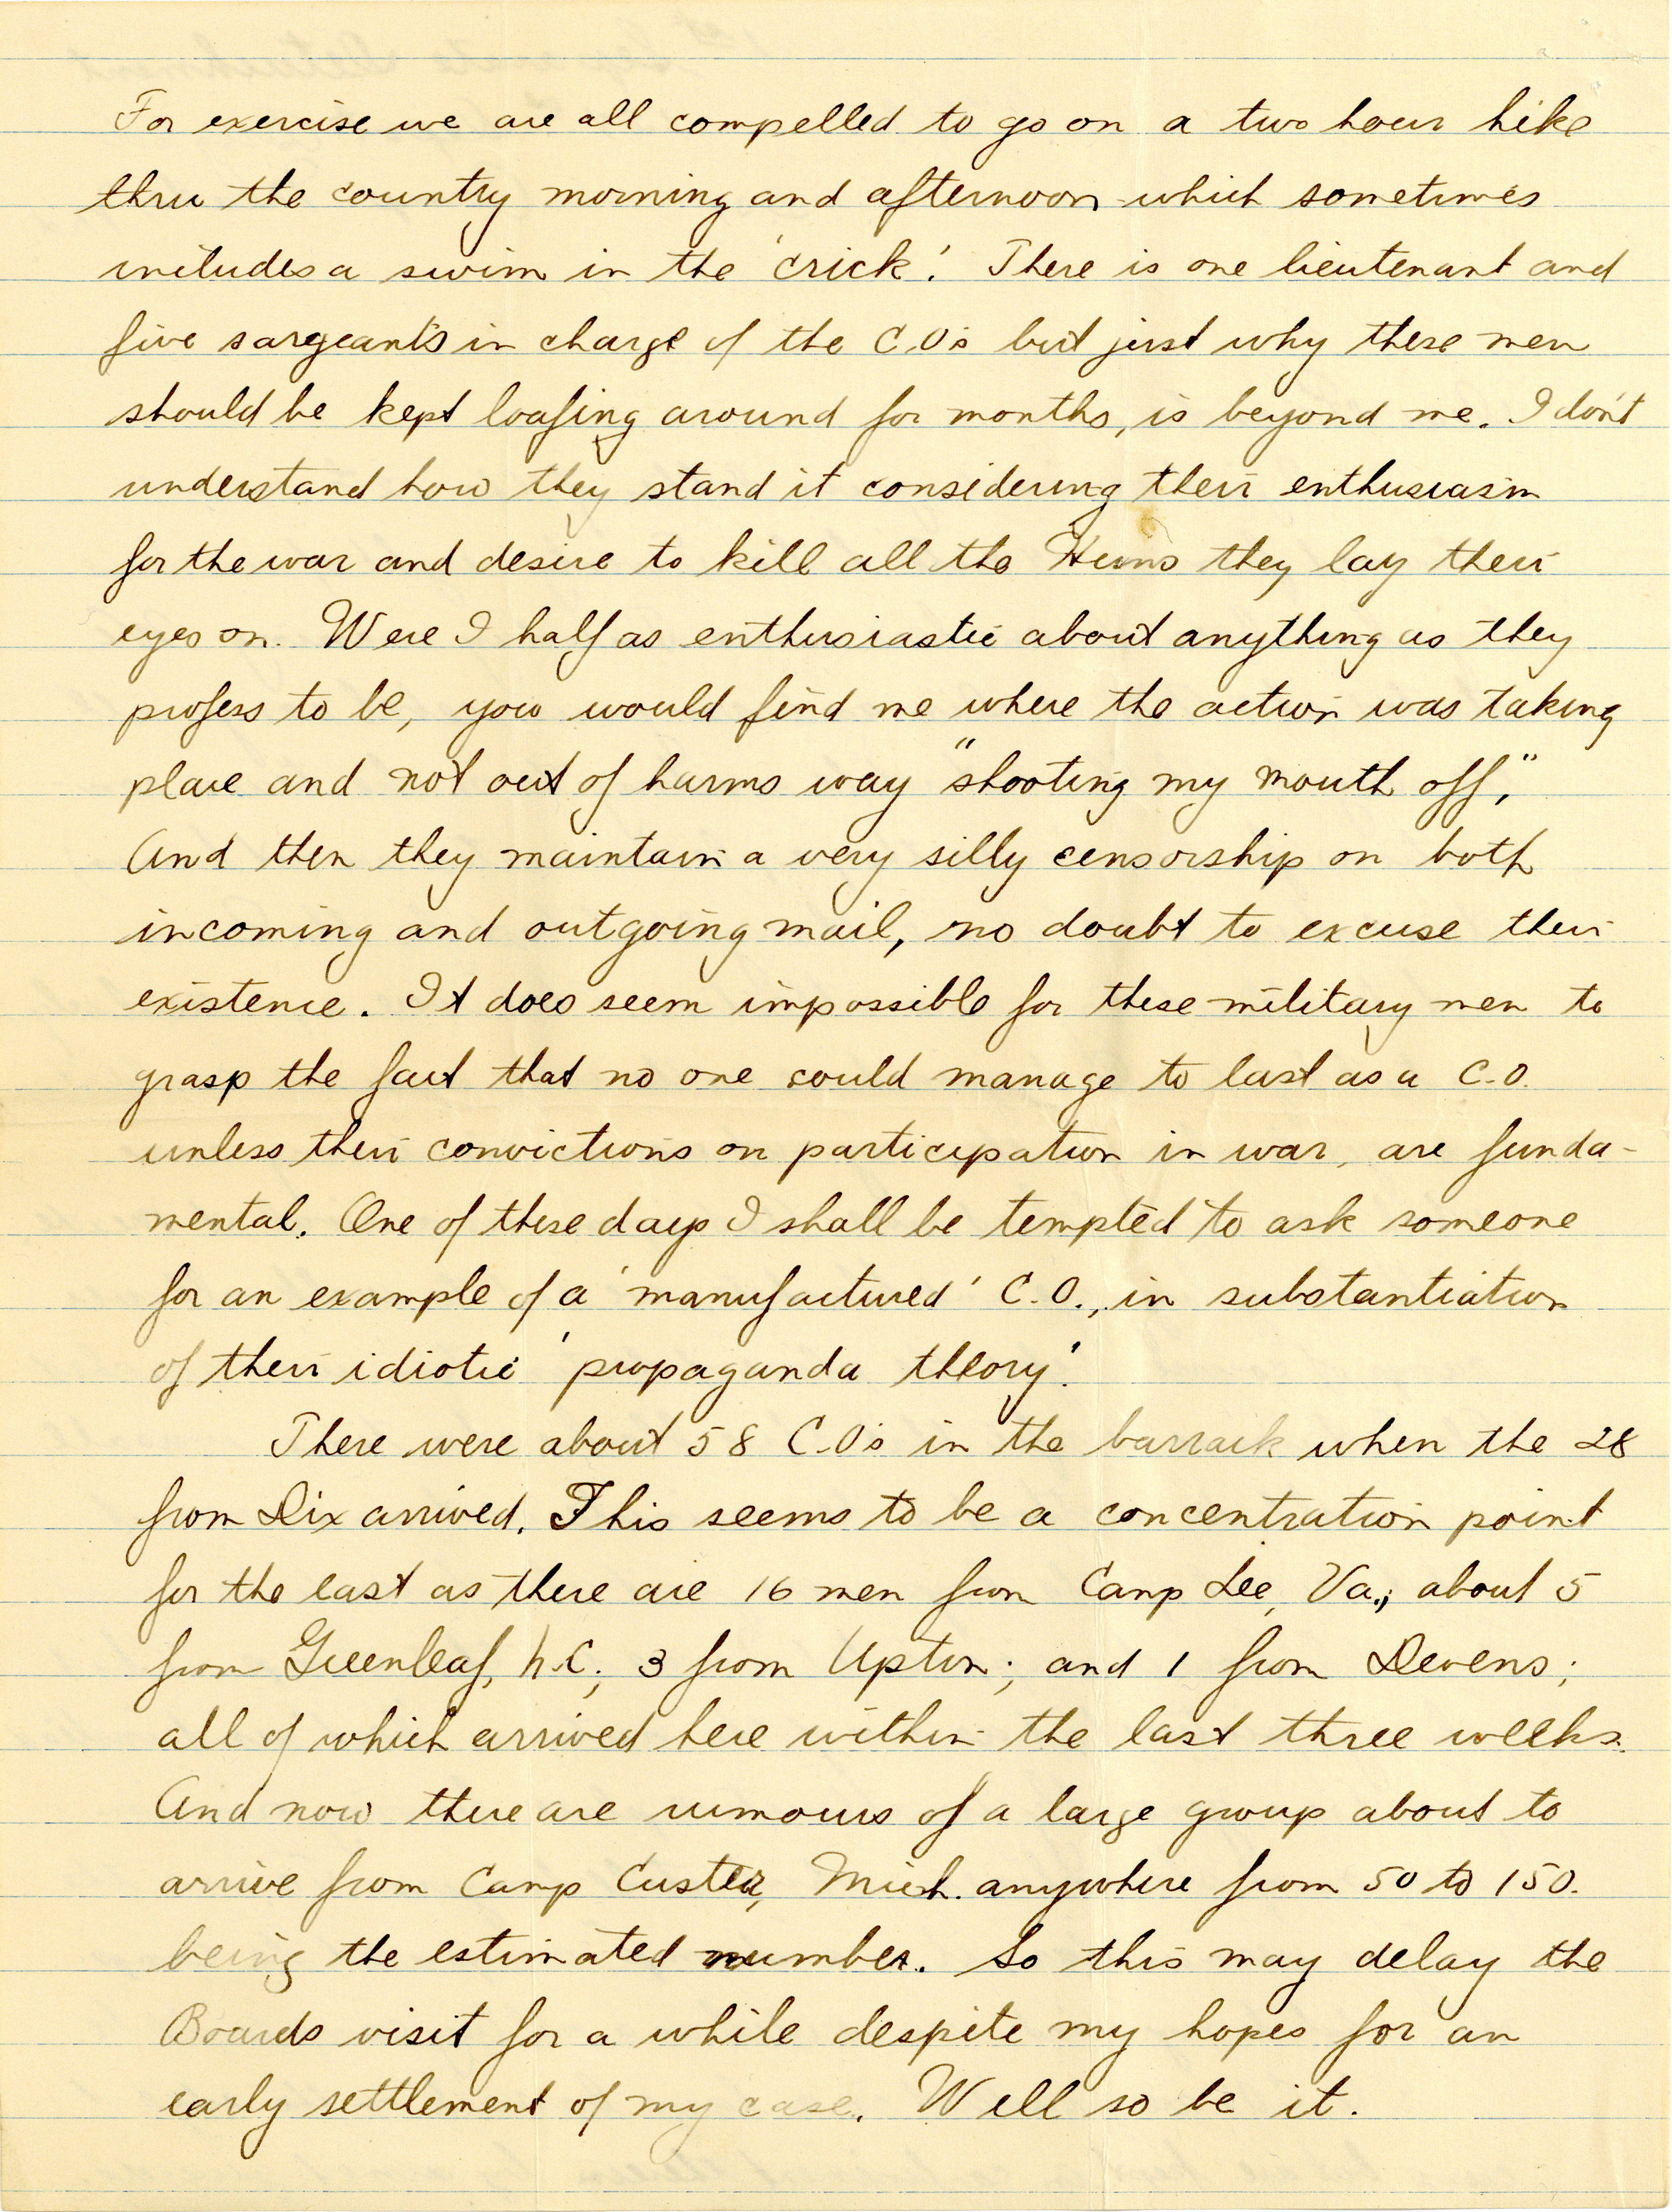 For exercise we are all compelled to go on a two hour hike
thru the country morning and afternoon which sometimes
includes a swim in the 'crick'. There is one lieutenant and
five sargeants in charge of the C.O's but just why these men
should be kept loafing around for months, is beyond me. I don't
understand how they stand it considering their enthusiasm
for the war and desire to kill all the Huns they lay their
eyes on. Were I half as enthusiastic about anything as they
profess to be, you would find me where the action was taking
place and not out of harms way "shooting my mouth off".
And then they maintain a very silly censorship on both
incoming and outgoing mail, no doubt to excuse their
existence. It does seem impossible for these military men to
grasp the fact that no one could manage to last as a C.O.
unless their convictions on participation in war, are funda-
mental. One of these days I shall be tempted to ask someone
for an example of a 'manufactured' C.O., in substantiation
of their idiotic 'propaganda theory'.
There were about 58 C.O's in the barrack when the 28
from Dix arrived. This seems to be a concentration point
for the east as there are 16 men from Camp Lee, Va.; about 5
from Greenleaf, N.C.; 3 from Upton; and 1 from Devens;
all of which arrived here within the last three weeks.
And now there are rumours of a large group about to
arrive from Camp Custer, Mich. anywhere from 50 to 150.
being the estimated number. So this may delay the
Boards visit for a while despite my hopes for an
early settlement of my case. Well so be it.